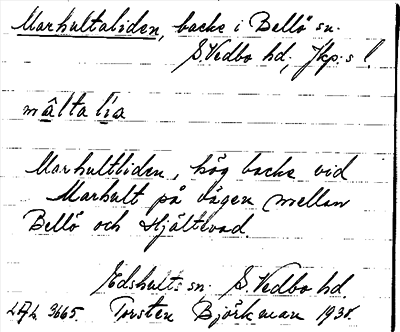 Marhultaliden, backe i Bellö sn.
S. Vedbo hd, Jkp:s l.
mâltalia
Marhultliden, hög backe vid
Marhult på vägen mellan
Bellö och Hjältevad.
Edshults sn. S. Vedbo hd.
3665. Torsten Björkman